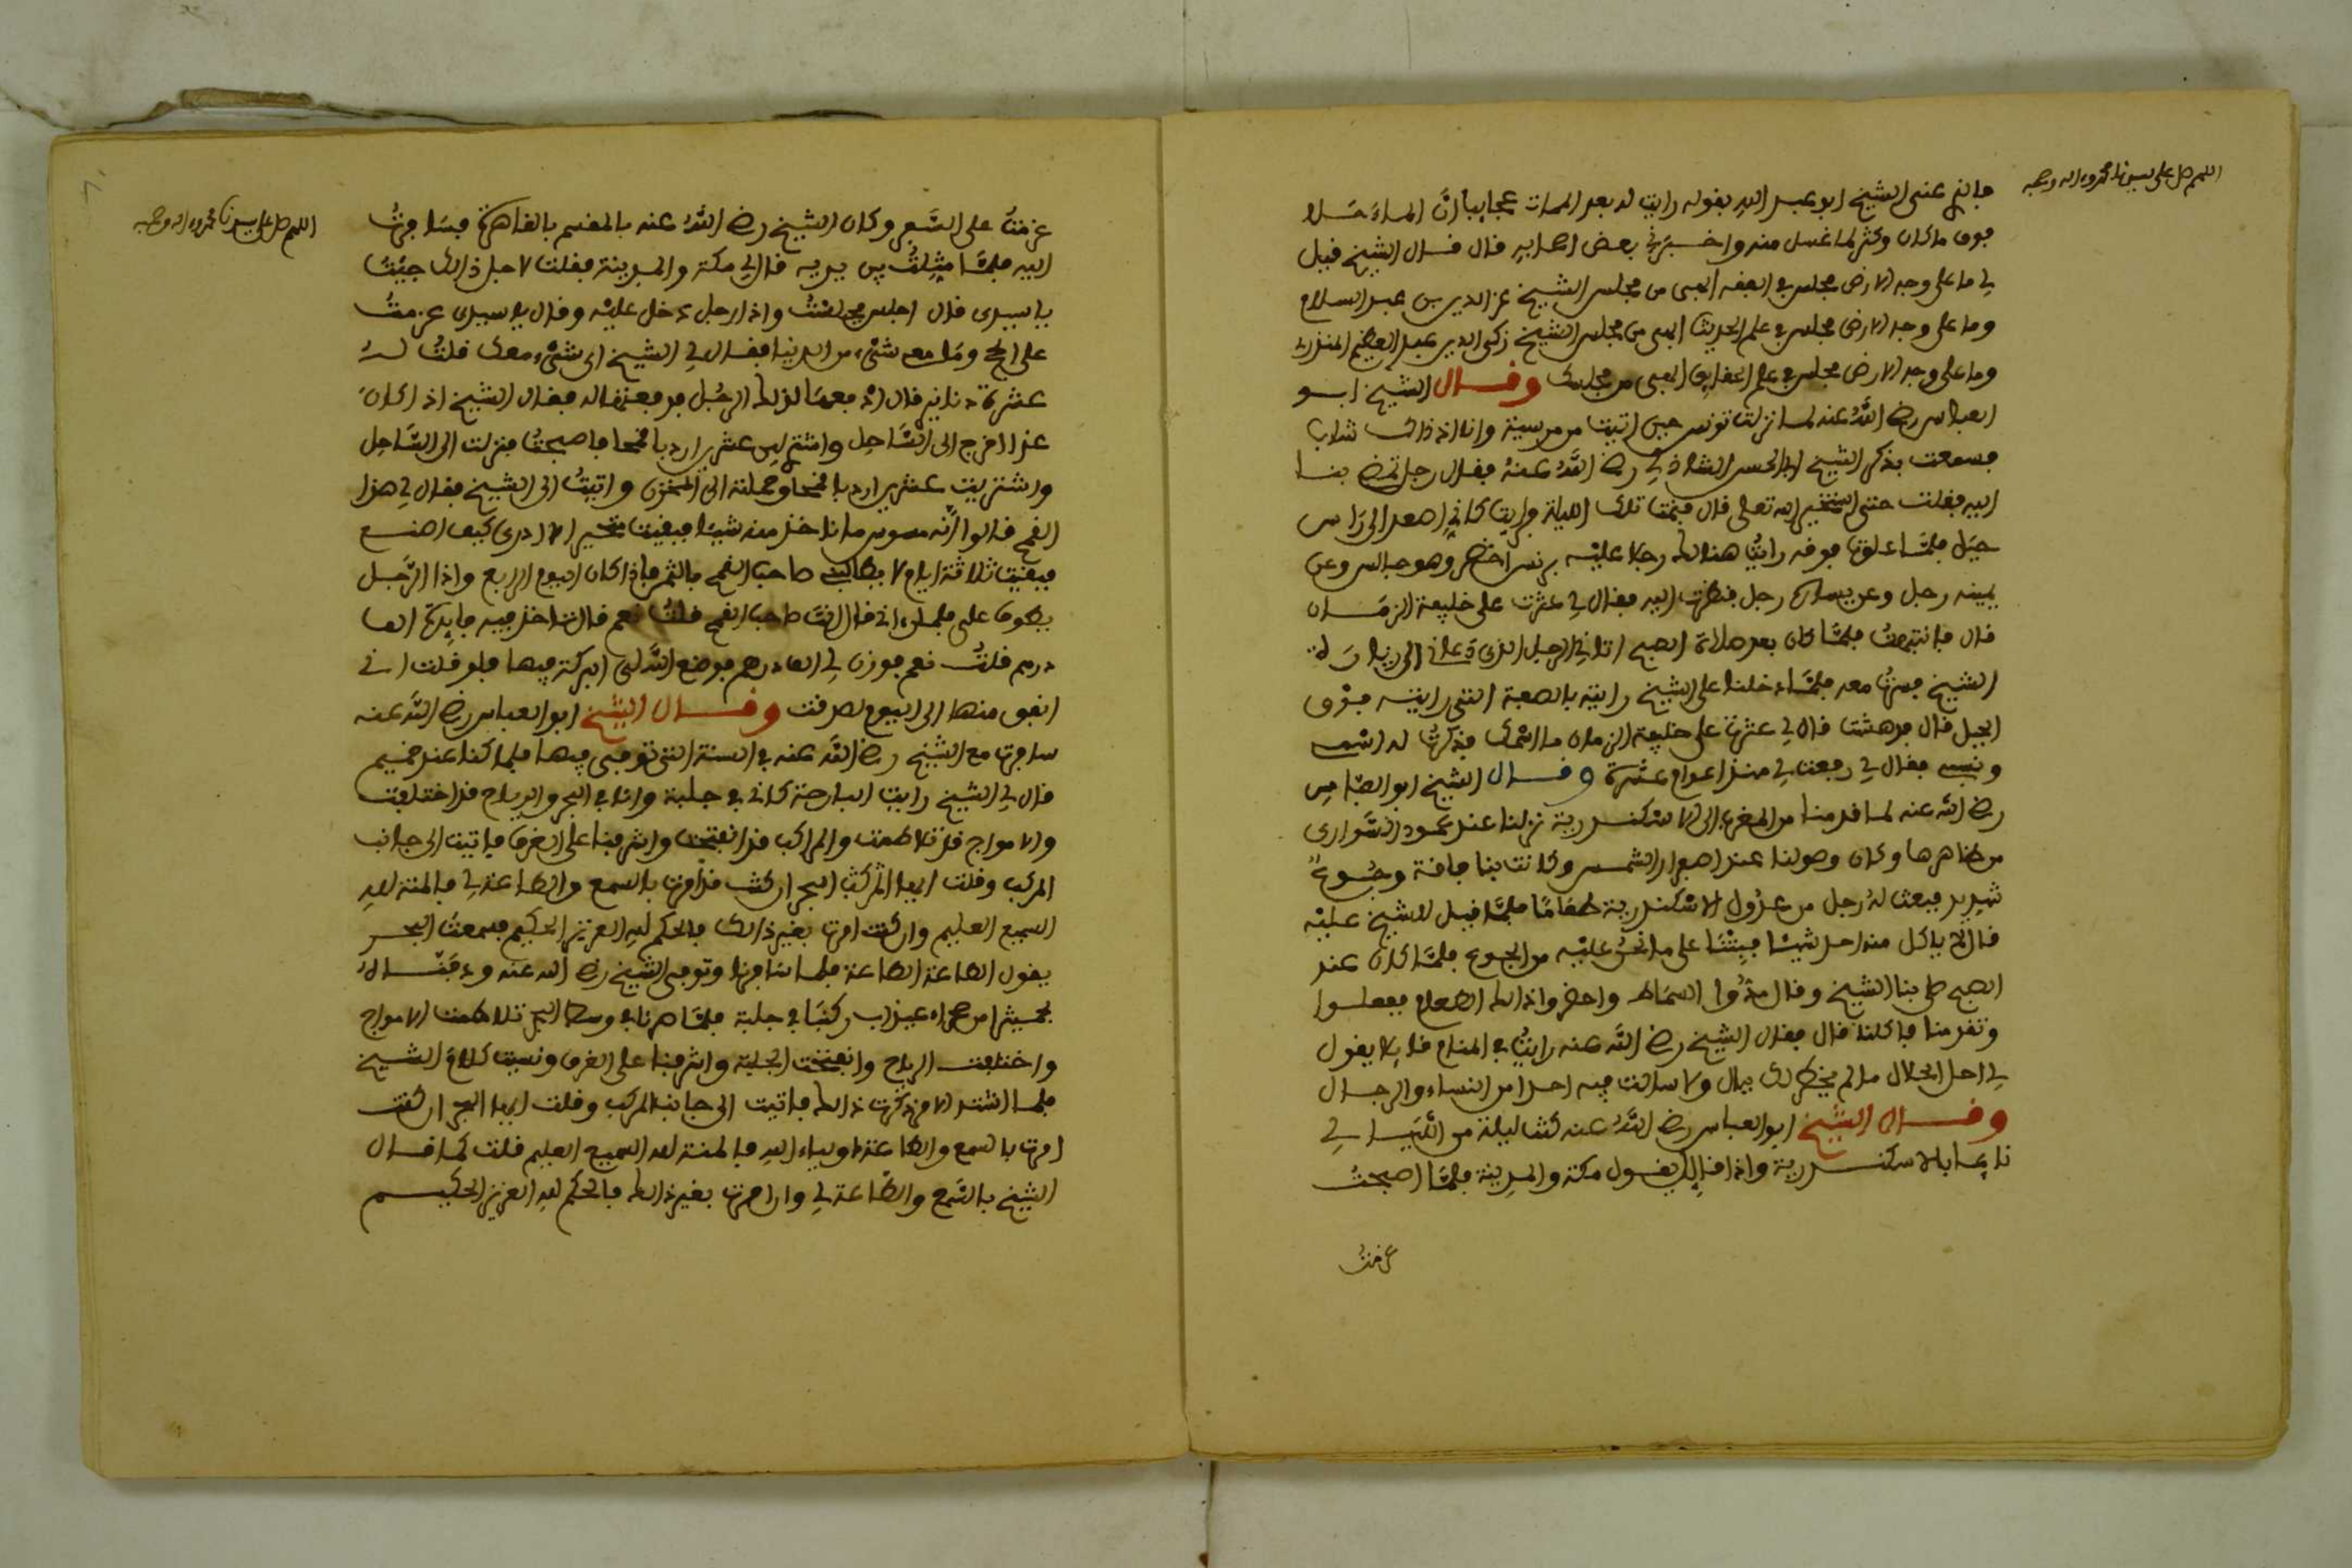 اللهم صل على سيدنا محمد واله وصحبه
فانه عنى الشيخ ابو عبد الله بقوله رايت له بعد الممات عجايبا ان الماء حلا
فوق ما كان وكثر لما غسل منه واخبرني بعض اصحابه قال قال الشيخ قيل
لي ما على وجه الارض مجلس في الفقه ابهى من مجلس الشيخ عز الدين بن عبد السلام
وما على وجه الارض مجلس في علم الحديث ابهى من مجلس الشيخ زكي الدين عبد العظيم المنذري
وما على وجه الارض مجلس في علم الحقايق ابهى من مجلسك وقال الشيخ ابو
العباس رضي الله عنه لما نزلت تونس حين اتيت من مرسية وانا اذ ذاك شاب
فسمعت بذكر الشيخ ابي الحسن الشاذلي رضي الله عنه فقال رجل تمضي بنا
اليه فقلت حتى استخير الله تعالى قال فنمت تلك الليلة فرايت كاني اصعد الى راس
جبل فلما علوت فوقه رايت هنالك رجلا عليه برنس اخضر وهو جالس وعن
يمينه رجل وعن يساره رجل فنظرت اليه فقال لي عثرت على خليفة الزمان
قال فانتبهت فلما كان بعد صلاة الصبح اتاني الرجل الذي دعاني الى زيارة
الشيخ فسرت معه فلما دخلنا على الشيخ رايته بالصفة التي رايته فوق
الجبل قال فدهشت قال لي عثرت على خليفة الزمان ما اسمك فذكرت له اسمي
ونسبي فقال لي رفعت لي منذ اعوام عشرة وقال الشيخ ابو العباس
رضي الله عنه لما قدمنا من المغرب الى الاسكندرية نزلنا عند عمود السواري
من ظاهرها وكان وصولنا عند اصفرار الشمس وكانت بنا فاقة وجوع
شديد فبعث له رجل من عدول الاسكندرية طعاما فلما قيل للشيخ عليه
قال لا ياكل منه احد شيئا فبتنا على ما نحن عليه من الجوع فلما كان عند
الصبح صلى بنا الشيخ وقال مدوا السماط واحضروا ذالك الطعام ففعلوا
وتقدمنا فاكلنا قال فقال الشيخ رضي الله عنه رايت في المنام قايلا يقول
لي احل الحلال ما لم يخطر لك ببال ولا سالت فيه احدا من النساء والرجال
وقال الشيخ ابو العباس رضي الله عنه كنت ليلة من الليالي
نايما بالاسكندرية واذا قايل يقول مكة والمدينة فلما اصبحت
عزمت
اللهم صل على سيدنا محمد واله وصحبه
عزمت على السفر وكان الشيخ رضي الله عنه بالمقسم بالقاهرة فسافرت
اليه فلما مثلت بين يديه قال لي مكة والمدينة فقلت لاجل ذالك جئت
يا سيدي قال اجلس فجلست واذا رجل دخل عليه وقال يا سيدي عزمت
على الحج وما معي شيء من الدنيا فقال لي الشيخ اي شيء معك قلت له
عشرة دنانير قال ادفعها لذلك الرجل فدفعتها له فقال الشيخ اذا كان
غدا اخرج الى الساحل واشتر لي عشرين اردبا قمحا فاصبحت فنزلت الى الساحل
واشتريت عشرين اردبا قمحا وحملته الى المخزن واتيت الى الشيخ فقال لي هذا
القمح قالوا انه مسوس ما ناخذ منه شيئا فبقيت متحير الا ادري كيف اصنع
فبقيت ثلاثة ايام لا يطالبني صاحب القمح بالثمن فاذا كان اليوم الرابع واذا الرجل
يطوف علي فلما راني قال انت صاحب القمح فقلت نعم قال اتاخذ فيه فايدة الف
درهم قلت نعم فوزن لي الف درهم فوضع الله لي البركة فيها فلو قلت اني
انفق منها الى اليوم لصدقت وقال الشيخ ابو العباس رضي الله عنه
سافرت مع الشيخ رضي الله عنه في السنة التي توفي فيها فلما كنا عند اخميم
قال لي الشيخ رايت البارحة كاني في جلبة وانا في البحر والرياح قد اختلفت
والامواج قد تلاطمت والمراكب قد انفتحت واشرفنا على الغرق فاتيت الى جانب
المركب وقلت ايها البحر ان كنت قد امرت بالسمع والطاعة لي فالمنة لله
السميع العليم وان كنت امرت بغير ذالك فالحكم لله العزيز الحكيم فسمعت البحر
يقول الطاعة الطاعة فلما سافرنا وتوفي الشيخ رضي الله عنه ودفناه
بحميثرا من صحراء عيذاب ركبنا في جلبة فلما صرنا في وسط البحر تلاطمت الامواج
واختلفت الرياح وانفتحت الجلبة واشرفنا على الغرق ونسيت كلام الشيخ
فلما اشتد الامر ذكرت ذالك فاتيت الى جانب المركب وقلت ايها البحر ان كنت
امرت بالسمع والطاعة لاولياء الله فالمنة لله السميع العليم فلت كما قال
الشيخ بالسمع والطاعة لي وان امرت بغير ذالك فالحكم لله العزيز الحكيم